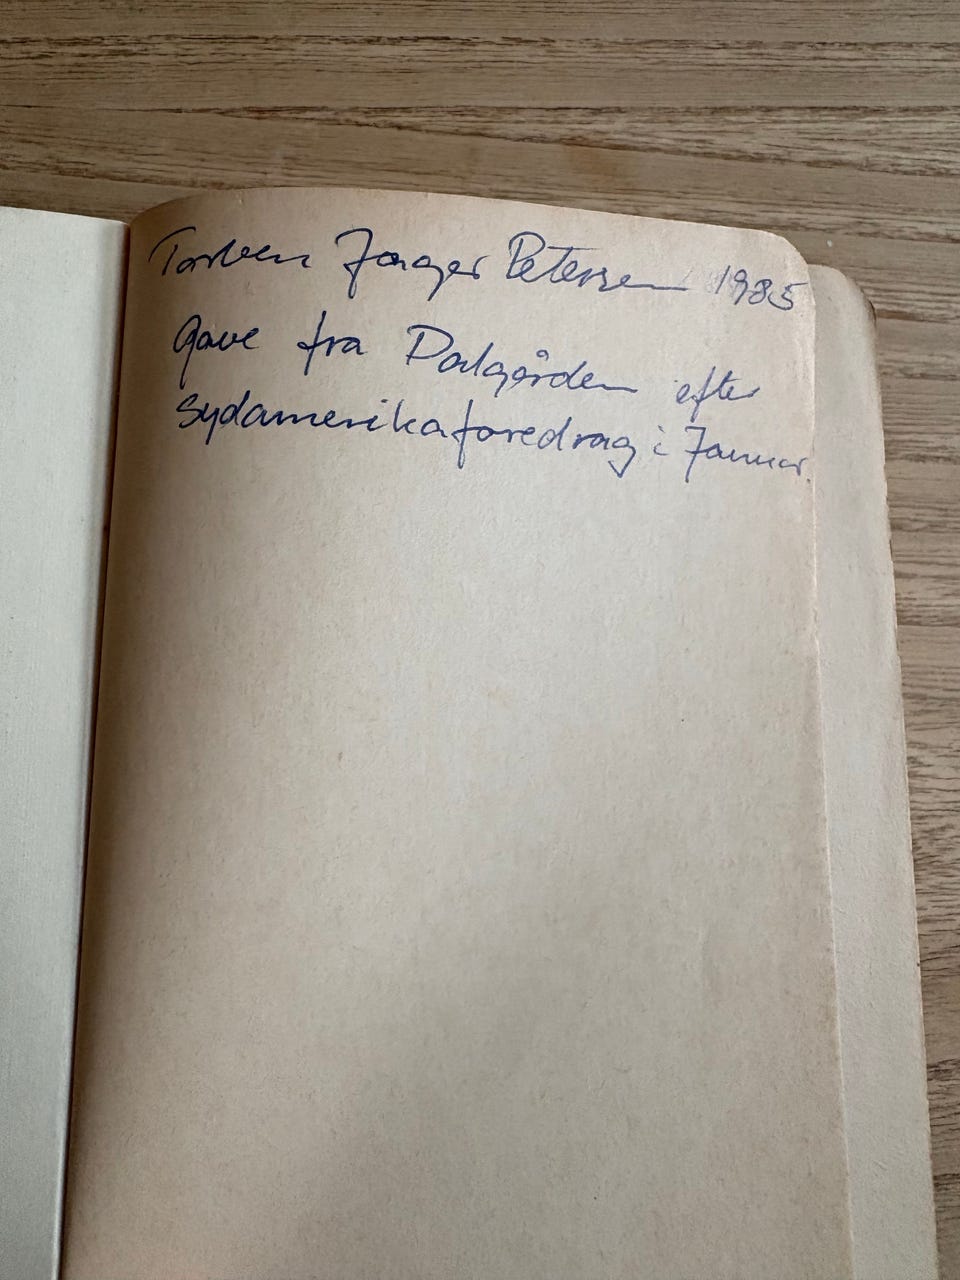 Torben Jager Petersen 1985
Gave fra Dalgården efter
sydamerikaforedrag i Januar